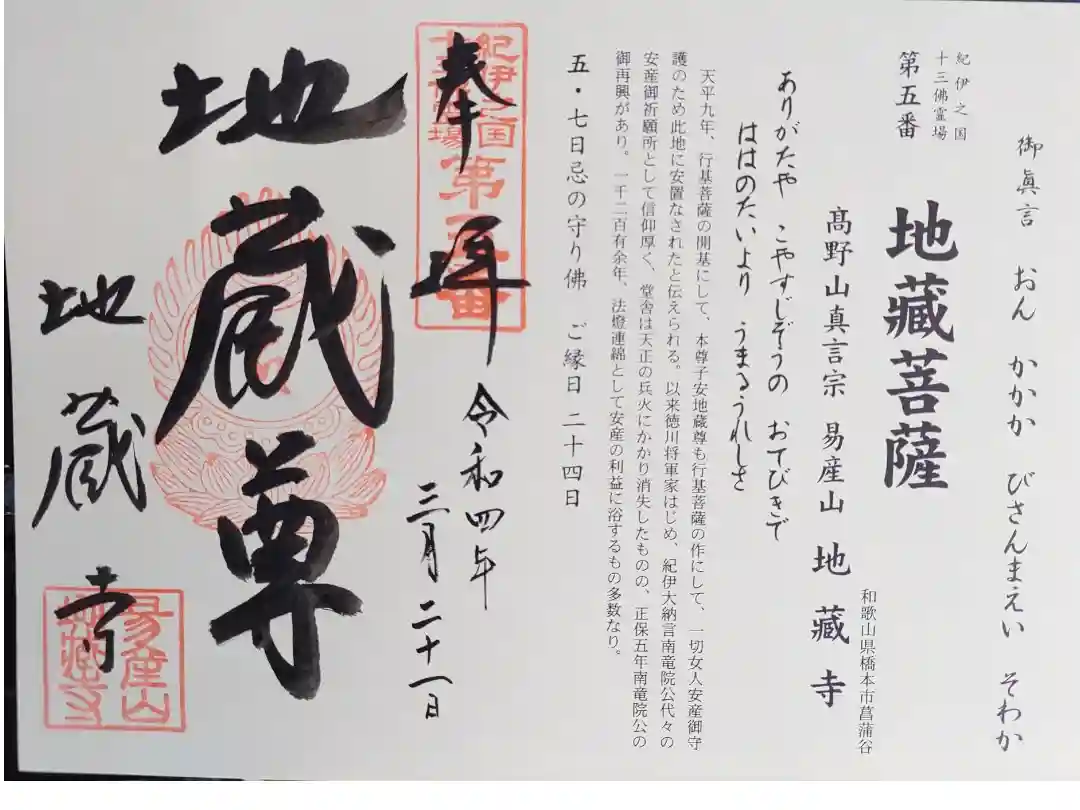 御眞言 おん かかか びさんまえい そわか
紀伊之国
十三佛霊場
第五番
地藏菩薩
和歌山県橋本市菖蒲谷
髙野山真言宗 易産山 地藏寺
ありがたや こやすじぞうの おてびきで
ははのたいより うまるうれしさ
天平九年、行基菩薩の開基にして、本尊子安地蔵尊も行基菩薩の作にして、一切女人安産御守
護のため此地に安置なされたと伝えられる。以来徳川将軍家はじめ、紀伊大納言南竜院公代々の
安産御祈願所として信仰厚く、堂舎は天正の兵火にかかり消失したものの、正保五年南竜院公の
御再興があり。一千二百有余年、法燈連綿として安産の利益に浴するもの多数なり。
五・七日忌の守り佛 ご縁日 二十四日
紀伊之国
十三佛霊場
第五番
奉拝
令和四年
三月二十一日
地蔵尊
地蔵寺
易産山
地蔵寺